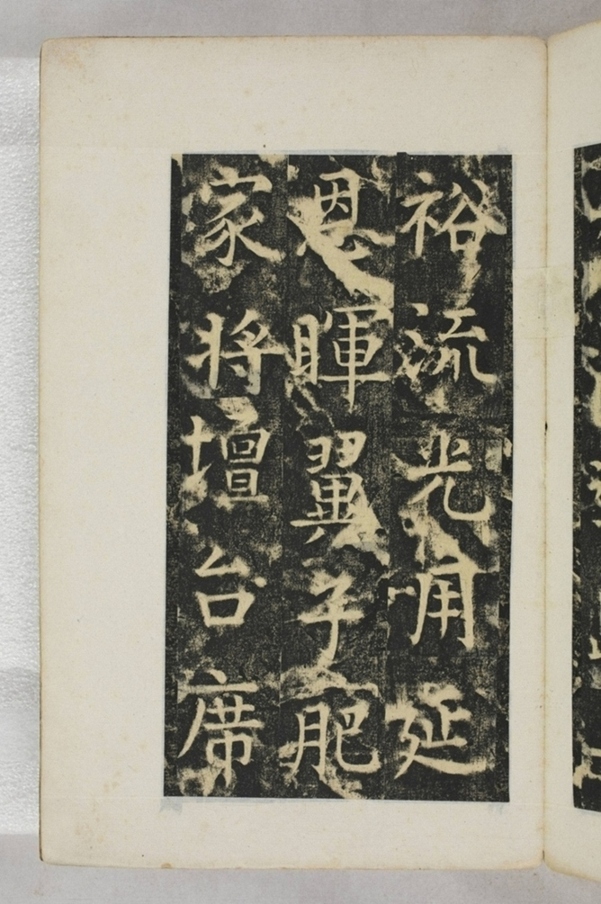 裕流光用延
恩暉翼子肥
家将壇台席